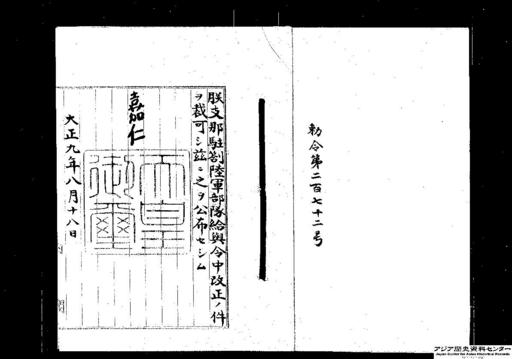 勅令第二百七十二号
朕支那駐劄陸軍部隊給與令中改正ノ件
ヲ裁可シ茲ニ之ヲ公布セシム
嘉仁
天皇
御璽
大正九年八月十八日
アジア歴史資料センター
Japan Center for Asian Historical Records